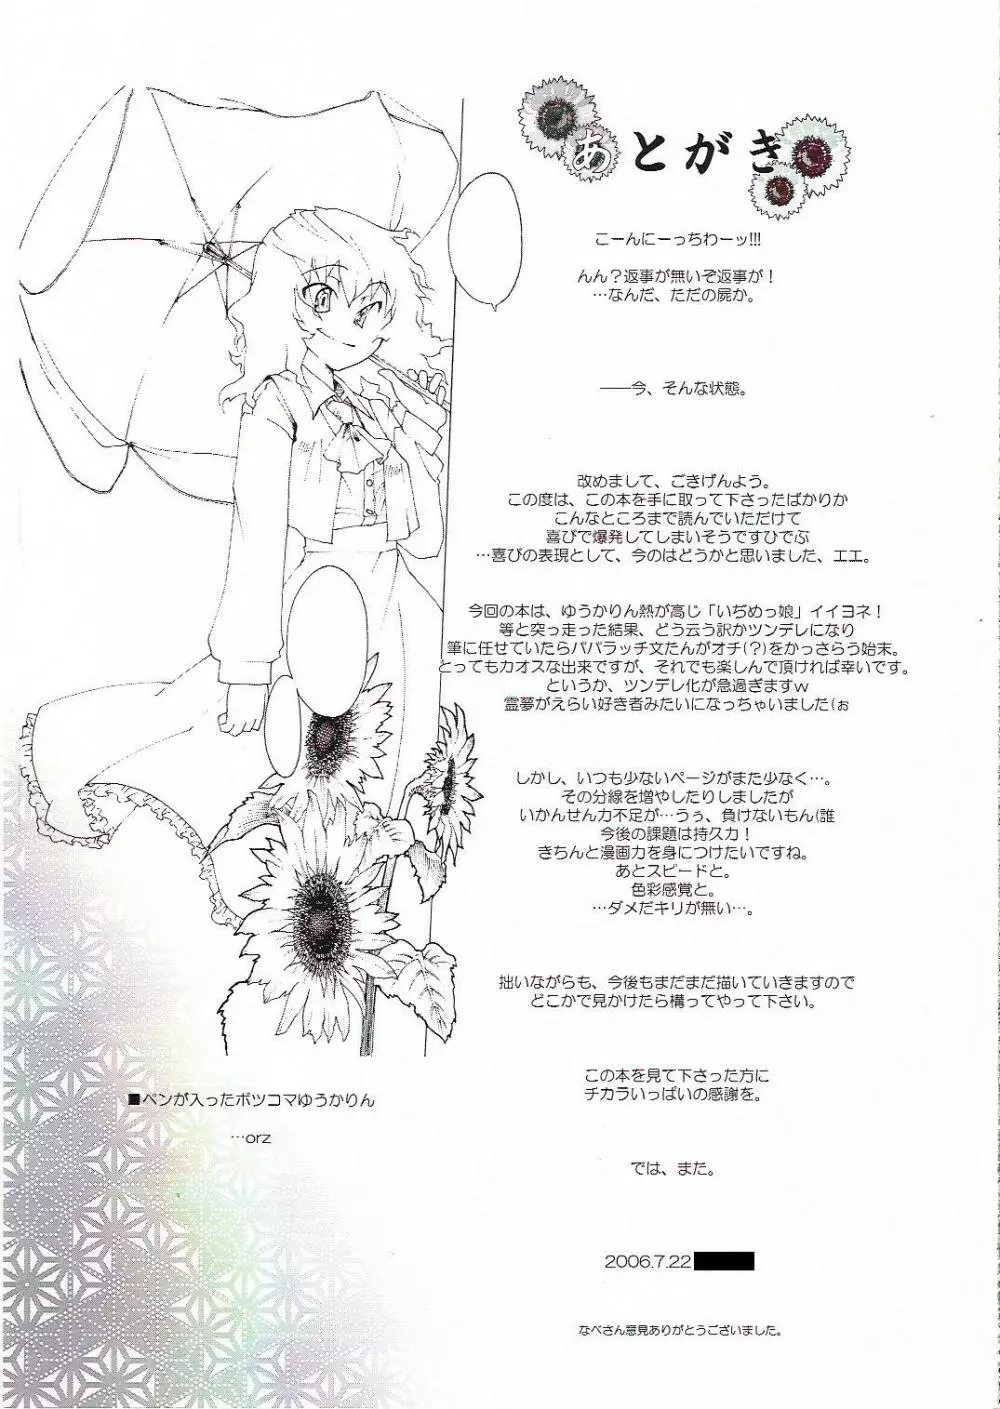 あとがき
こーんにーっちわーッ!!!
んん？返事が無いぞ返事が！
…なんだ、ただの屍か。
――今、そんな状態。
改めまして、ごきげんよう。
この度は、この本を手に取って下さったばかりか
こんなところまで読んでいただけて
喜びで爆発してしまいそうですひでぶ
…喜びの表現として、今のはどうかと思いました、エエ。
今回の本は、ゆうかりん熱が高じ「いぢめっ娘」イイヨネ！
等と突っ走った結果、どう云う訳かツンデレになり
筆に任せていたらパパラッチ文たんがオチ(？)をかっさらう始末。
とってもカオスな出来ですが、それでも楽しんで頂ければ幸いです。
というか、ツンデレ化が急過ぎますｗ
霊夢がえらい好き者みたいになっちゃいました(ぉ
しかし、いつも少ないページがまた少なく…。
その分線を増やしたりしましたが
いかんせん力不足が…うぅ、負けないもん(誰
今後の課題は持久力！
きちんと漫画力を身につけたいですね。
あとスピードと。
色彩感覚と。
…ダメだキリが無い…。
拙いながらも、今後もまだまだ描いていきますので
どこかで見かけたら構ってやって下さい。
この本を見て下さった方に
チカラいっぱいの感謝を。
では、また。
2006.7.22
なべさん意見ありがとうございました。
■ペンが入ったボツコマゆうかりん
…orz